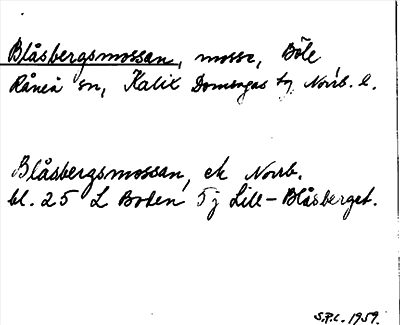 Blåsbergsmossan, mosse, Böle
Råneå sn, Kalix Domsagas tg. Norrb. l.
Blåsbergsmossan, ek Norrb.
bl. 25 L Boden 5j Lill-Blåsberget.
S.P.L. 1959.